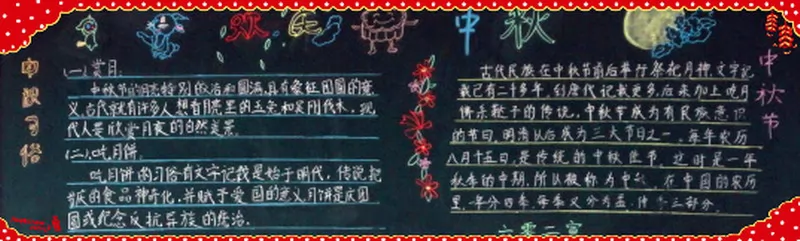 欢庆中秋
中秋习俗
(一)赏月
中秋节的明亮特别皎洁和圆满,具有象征团圆的意
义,古代就有许多人想看月亮里的玉兔和吴刚伐木,现
代人是欣赏月夜的自然美景.
(二)吃月饼.
吃月饼的习俗有文字记载是始于明代,传说把
节的食品神奇化,并赋于爱国的意义,月饼是庆团
圆或纪念反抗异族的统治.
古代民族在中秋节前后举行祭祀月神,文字记
载已有二千多年,到唐代记载更多,后来加上吃月
饼杀鞑子的传说,中秋节成为有民族意识
的节日,明清以后成为三大节日之一,每年农历
八月十五日,是传统的中秋佳节,这时是一年
秋季的中期,所以被称为中秋,在中国的农历
里,一年分四季,每季又分为孟、仲、季三部分.
六零二宣
中秋节